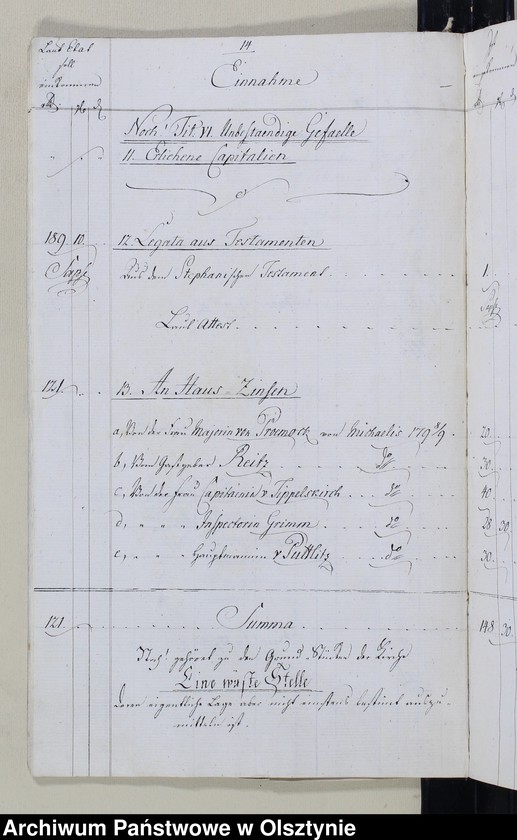 14
Laut Etat
soll
einkommen
Einnahme
Noch Tit VI. Unbestaendige Gefaelle
11. Erlichene Capitalien
189 10. 12. Legata aus Testamenten
Aus dem Stephanischen Testament 1.
Laut Attest
121. 13. An Haus-Zinsen
a, Von der Frau Majorin von von Michaelis 179 8/9. 20.
b, Vom Reitz do 30.
c, Von der Frau Capitainin v. Tippelskirch do 40.
d, " " " Inspectorin Grimm do 28 30.
e, " " " Hauptmannin v Puttlitz do 30.
121. Summa 148 30.
Noch gehöret zu den Grund-Stücken der Kirche
Eine wüste Stelle
deren eigentliche Lage aber nicht bestimt auszu-
mitteln ist.
Archiwum Państwowe w Olsztynie